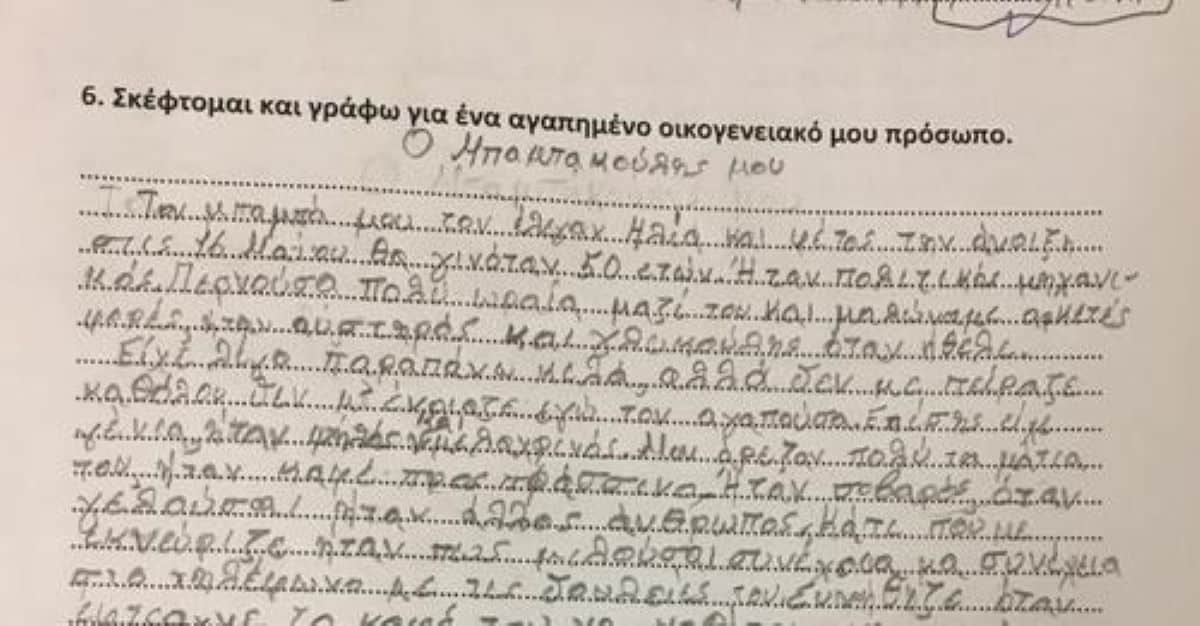 6. Σκέφτομαι και γράφω για ένα αγαπημένο οικογενειακό μου πρόσωπο.
Ο Μπαμπακούλης μου
Τον μπαμπά μου τον έλεγαν Ηλία και φέτος την άνοιξη
στις 16 Μαΐου θα γινόταν 50 ετών. Ήταν πολιτικός μηχανι-
κός. Περνούσα πολύ ωραία μαζί του και μαλώναμε αρκετές
φορές, ήταν αυστηρός και γλυκούλης όταν ήθελε.
Είχε λίγα παραπάνω κιλά, αλλά δεν με πείραζε
καθόλου δεν μ' ένοιαζε εγώ τον αγαπούσα. Επίσης είχε
γένια, ήταν ψηλός και μελαχρινός. Μου άρεζαν πολύ τα μάτια
του ήταν καφέ προς πράσινα. Ήταν σοβαρός, όταν
γελούσε ήταν άλλος άνθρωπος. Κάτι που με
εκνεύριζε ήταν πως μιλούσε συνέχεια κα συνέχεια
στο τηλέφωνο με τις δουλειές του. όταν